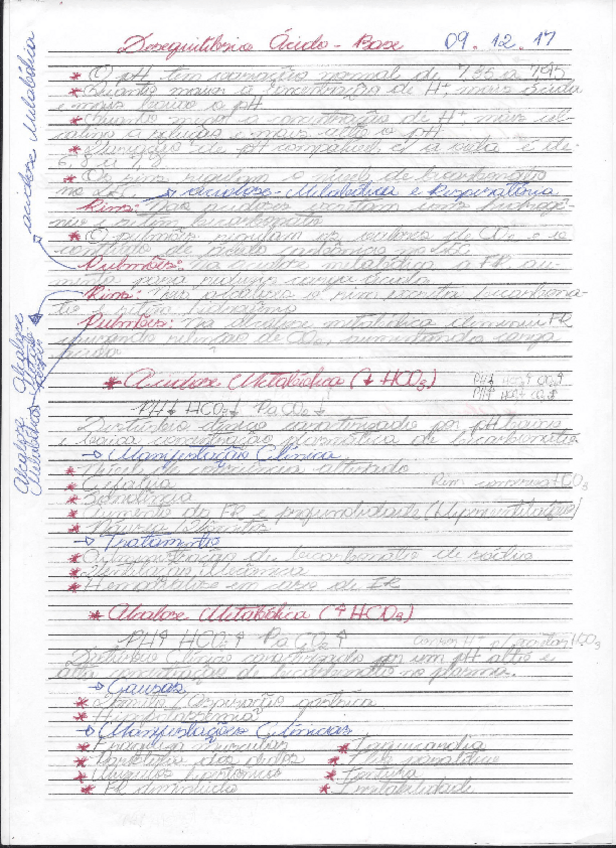 Desequilíbrio Ácido - Base 09.12.17
* O pH tem variação normal de 7,35 a 7,45
* Quanto maior a concentração de H+, mais ácida
e mais baixo o pH
* Quanto menor a concentração de H+ mais al-
calina a solução e mais alto o pH
* Variação de pH compatível c/ a vida é de
6,8 a 7,8
* Os rins regulam o nível de bicarbonato
no LEC. → acidose - Metabólica e Respiratória
Rins: Nas acidoses excretam íons hidrogê-
nio e retém bicarbonato
* O pulmões regulam os valores de CO2 e o
conteúdo de ácido carbônico no LEC
Pulmões: na acidose metabólica a FR au-
menta para
Rins: Nas alcalose o rim excreta bicarbona-
to e retém hidrogênio
Pulmões: na alcalose metabólica diminui FR
retenção de CO2, aumentando
acidose Metabólica
Alcalose
Alcalose Metabólica
* Acidose Metabólica (↓ HCO3)
PH↓ HCO3↓ PaCO2↓
Distúrbio clínico caracterizado por pH baixo
e baixa concentração plasmática de bicarbonato
→ Manifestação Clínica
* Nível de consciência alterado
* Cefaleia
* Sonolência
* Aumento da FR e profundidade (Hiperventilação)
* Náusea / Vômitos
→ Tratamento
* Administração de bicarbonato de sódio
* Ventilação Mecânica
* Hemodiálise em caso de IR
* Alcalose Metabólica (↑ HCO3)
PH↑ HCO3↑ PaCO2↑
Distúrbio Clínico caracterizado por um pH alto e
alta concentração de bicarbonato no plasma.
→ Causas
* Vômito / Aspiração gástrica
* Hipopotassemia
→ Manifestações Clínicas
* Fraqueza muscular * Taquicardia
* dos dedos * Íleo paralítico
* Músculos hipertônicos * Tontura
* FR diminuída * Irritabilidade